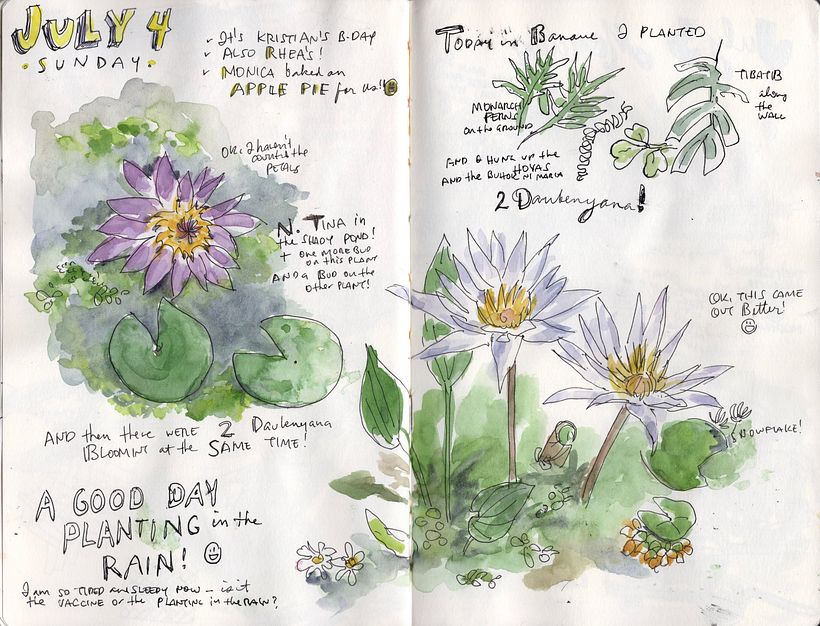 JULY 4
SUNDAY
IT'S KRISTIAN'S B-DAY
ALSO RHEA'S!
MONICA baked an
APPLE PIE for us!!
OK. I haven't
counted the
PETALS
N. TINA in
the SHADY POND!
+ ONE MORE BUD
on this PLANT
AND a BUD on the
OTHER PLANT!
AND then there WERE 2 Daubenyana
BLOOMING at the SAME TIME!
A GOOD DAY
PLANTING in the
RAIN!
I am so TIRED and SLEEPY NOW - is it
the VACCINE or the PLANTING in the RAIN?
TODAY in Banaue I PLANTED
MONARCH
FERNS
on the GROUND
TIBATIB
along
the
WALL
AND I HUNG UP the
HOYAS
AND the BUHOK NI MARIA
2 Daubenyana!
OK, THIS CAME
OUT Better!
SNOWFLAKE!